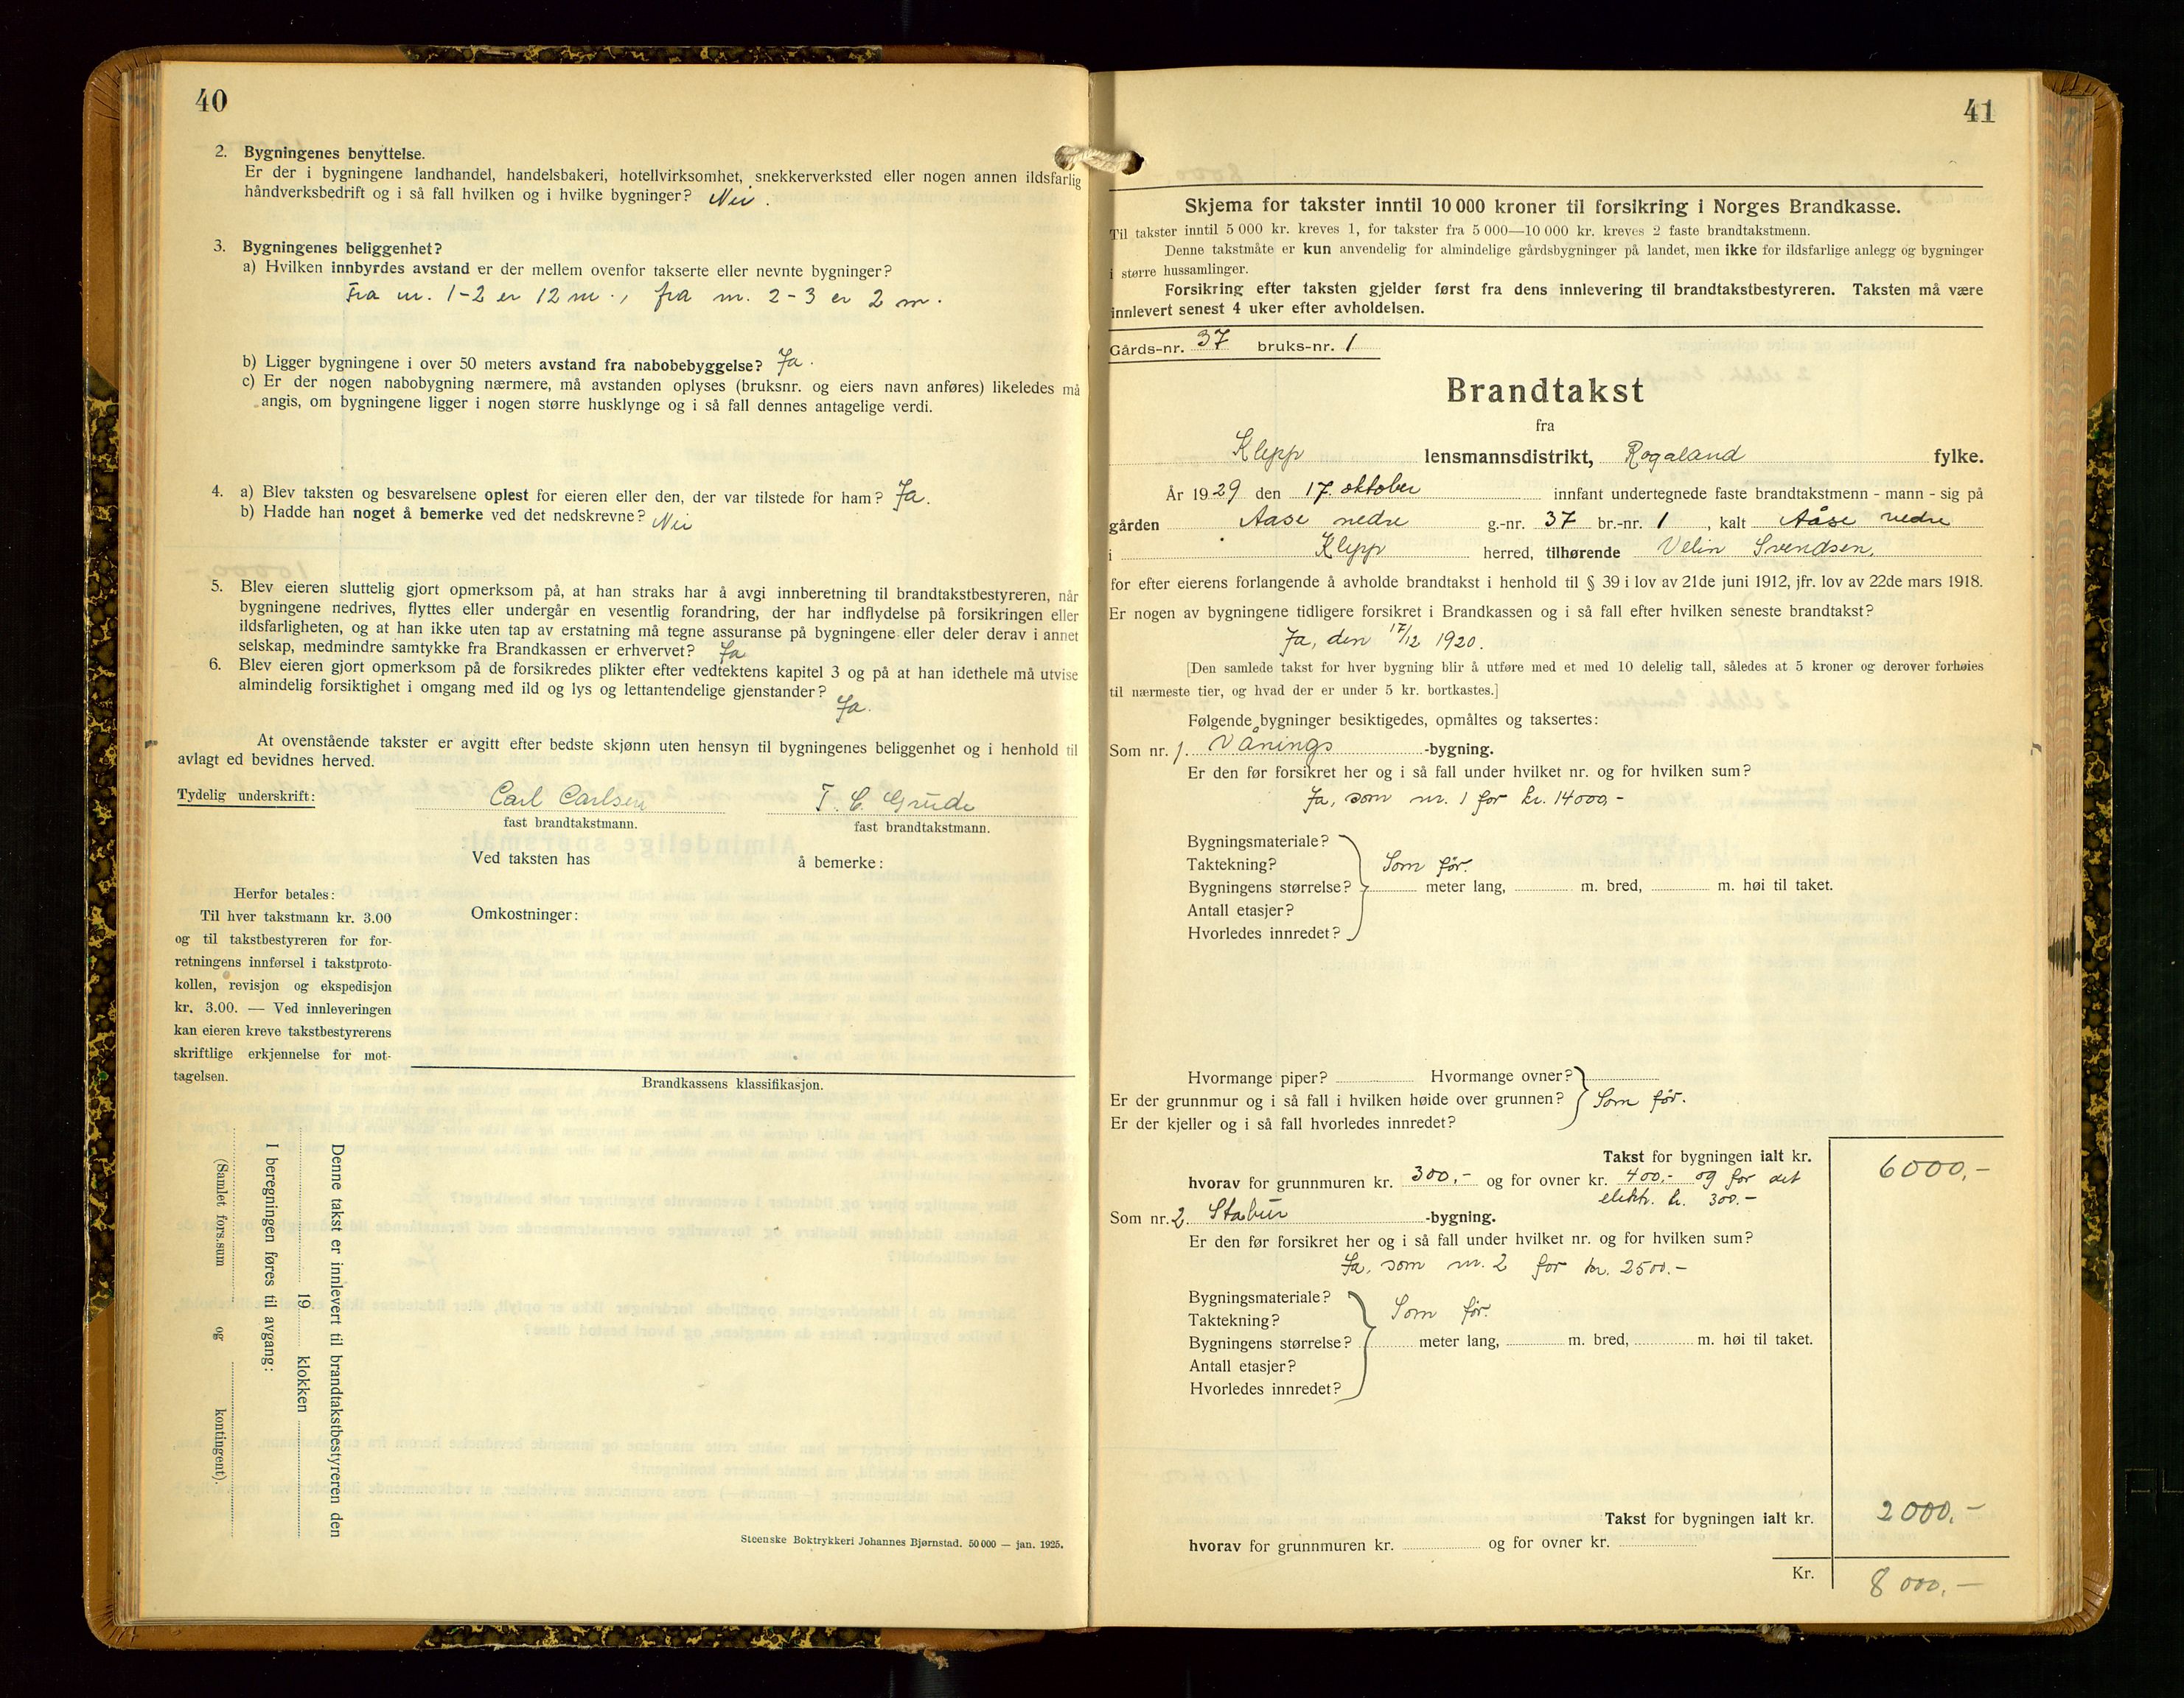 40
2. Bygningenes benyttelse.
Er der i bygningene landhandel, handelsbakeri, hotellvirksomhet, snekkerverksted eller nogen annen ildsfarlig
håndverksbedrift og i så fall hvilken og i hvilke bygninger? Nei.
3. Bygningenes beliggenhet?
a) Hvilken innbyrdes avstand er der mellem ovenfor takserte eller nevnte bygninger?
Fra nr. 1-2 er 12 m., fra nr. 2-3 er 2 m.
b) Ligger bygningene i over 50 meters avstand fra nabobebyggelse? Ja.
c) Er der nogen nabobygning nærmere, må avstanden oplyses (bruksnr. og eiers navn anføres) likeledes må
angis, om bygningene ligger i nogen større husklynge og i så fall dennes antagelige verdi.
4. a) Blev taksten og besvarelsene oplest for eieren eller den, der var tilstede for ham? Ja.
b) Hadde han noget å bemerke ved det nedskrevne? Nei
5. Blev eieren sluttelig gjort opmerksom på, at han straks har å avgi innberetning til brandtakstbestyreren, når
bygningene nedrives, flyttes eller undergår en vesentlig forandring, der har indflydelse på forsikringen eller
ildsfarligheten, og at han ikke uten tap av erstatning må tegne assuranse på bygningene eller deler derav i annet
selskap, medmindre samtykke fra Brandkassen er erhvervet? Ja
6. Blev eieren gjort opmerksom på de forsikredes plikter efter vedtektens kapitel 3 og på at han idethele må utvise
almindelig forsiktighet i omgang med ild og lys og lettantendelige gjenstander?
Ja.
At ovenstående takster er avgitt efter bedste skjønn uten hensyn til bygningenes beliggenhet og i henhold til
avlagt ed bevidnes herved.
Tydelig underskrift: Carl Carlsen T. C. Grude
fast brandtakstmann. fast brandtakstmann.
Ved taksten has å bemerke:
Herfor betales:
Til hver takstmann kr. 3.00
og til takstbestyreren for for-
retningens innførsel i takstproto-
kollen, revisjon og ekspedisjon
kr. 3.00. — Ved innleveringen
kan eieren kreve takstbestyrerens
skriftlige erkjennelse for mot-
tagelsen.
Omkostninger:
Brandkassens klassifikasjon.
Denne takst er innlevert til brandtakstbestyreren den
19 klokken
I beregningen føres til avgang:
(Samlet fors.sum og kontingent).
Steenske Boktrykkeri Johannes Bjørnstad. 50 000 — jan. 1925.
41
Skjema for takster inntil 10 000 kroner til forsikring i Norges Brandkasse.
Til takster inntil 5 000 kr. kreves 1, for takster fra 5 000—10 000 kr. kreves 2 faste brandtakstmenn.
Denne takstmåte er kun anvendelig for almindelige gårdsbygninger på landet, men ikke for ildsfarlige anlegg og bygninger
i større hussamlinger.
Forsikring efter taksten gjelder først fra dens innlevering til brandtakstbestyreren. Taksten må være
innlevert senest 4 uker efter avholdelsen.
Gårds-nr. 37 bruks-nr. 1
Brandtakst
fra
Klepp lensmannsdistrikt, Rogaland fylke.
År 1929 den 17. oktober innfant undertegnede faste brandtakstmenn - mann - sig på
gården Aase nedre g.-nr. 37 br.-nr. 1, kalt Aåse nedre
i Klepp herred, tilhørende Velin Svendsen,
for efter eierens forlangende å avholde brandtakst i henhold til § 39 i lov av 21de juni 1912, jfr. lov av 22de mars 1918.
Er nogen av bygningene tidligere forsikret i Brandkassen og i så fall efter hvilken seneste brandtakst?
Ja, den 17/12 1920.
[Den samlede takst for hver bygning blir å utføre med et med 10 delelig tall, således at 5 kroner og derover forhøies
til nærmeste tier, og hvad der er under 5 kr. bortkastes.]
Følgende bygninger besiktigedes, opmåltes og taksertes:
Som nr. 1. Vånings -bygning.
Er den før forsikret her og i så fall under hvilket nr. og for hvilken sum?
Ja, som nr. 1 for kr. 14000,-
Bygningsmateriale?
Taktekning? Som før.
Bygningens størrelse? meter lang, m. bred, m. høi til taket.
Antall etasjer?
Hvorledes innredet?
Hvormange piper? Hvormange ovner?
Er der grunnmur og i så fall i hvilken høide over grunnen? Som før.
Er der kjeller og i så fall hvorledes innredet?
Takst for bygningen ialt kr. 6000,-
hvorav for grunnmuren kr. 300,- og for ovner kr. 400,- og for det
elektr. kr. 300.-
Som nr. 2. Stabur -bygning.
Er den før forsikret her og i så fall under hvilket nr. og for hvilken sum?
Ja, som nr. 2 for kr. 2500.-
Bygningsmateriale?
Taktekning? Som før.
Bygningens størrelse? meter lang, m. bred, m. høi til taket.
Antall etasjer?
Hvorledes innredet?
Takst for bygningen ialt kr. 2000,-
hvorav for grunnmuren kr. og for ovner kr.
Kr. 8000,-